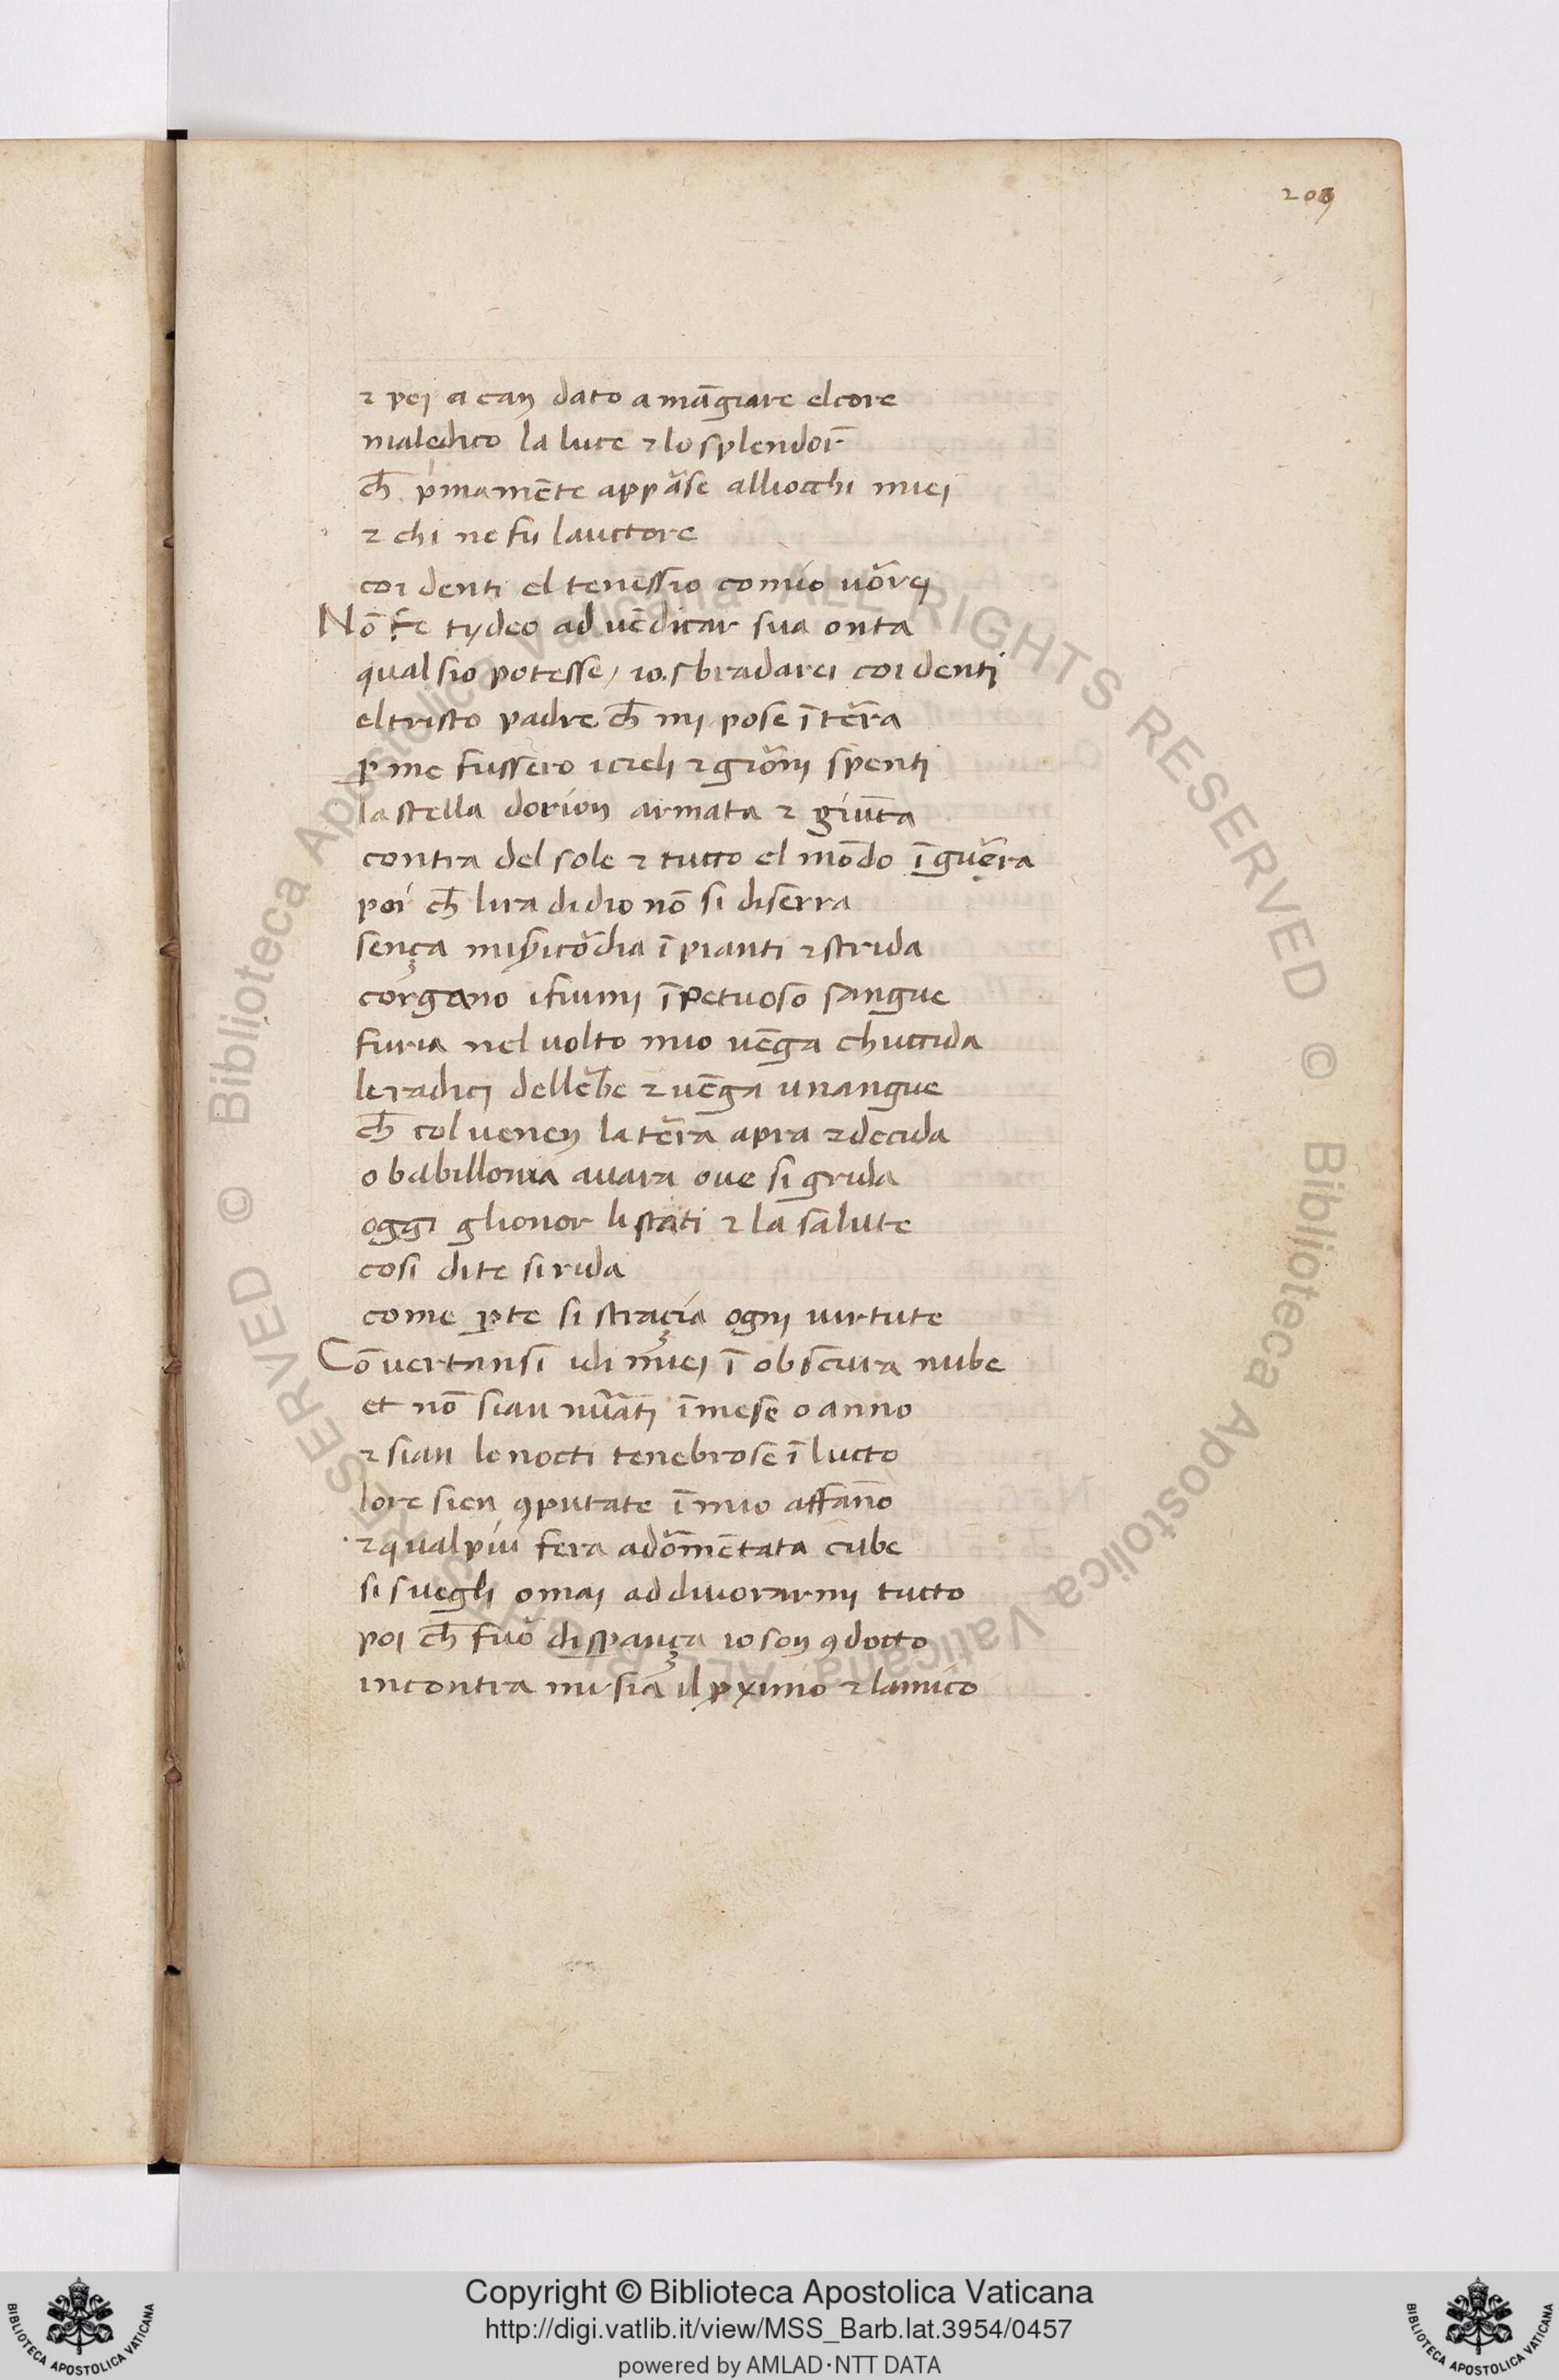 209
⁊ poi a can dato a mãgiare elcore
maledico la luce ⁊ lo splendor̃
ch̃ p͛mamẽte appãse alliocchi miei
⁊ chi ne fu lauctore
coi denti el tenessio comio uõrei
Nõ fe tydeo ad uẽdicar sua onta
qual sio potesse / io sbradarei coi denti
eltristo padre ch̃ mi pose ĩ tẽra
ꝑ me fussero icieli ⁊ giõni spenti
la stella dorion armata ⁊ giũta
contra del sole ⁊ tutto el mõdo ĩ guẽra
poi ch̃ lira didio nõ si diserra
sença misicõdia ĩ pianti ⁊ strida
corgano ifiumi ĩpetuoso sangue
furia nel uolto mio uẽga chuccida
le radici dellẽbe ⁊ uẽga unangue
ch̃ col uenen la tẽra apra ⁊ decida
o babillonia auara oue si grida
oggi glionor li stati ⁊ la salute
cosi di te si rida
come ꝑ te si straçia ogni uirtute
Cõuertansi idi miei ĩ obscura nube
et nõ sian nũati ĩ mese o anno
⁊ sian le nocti tenebrose ĩ lucto
lore sien ꝯputate ĩ mio affãno
⁊ qual piu fera adõmẽtata cube
si suegli omai ad diuorarmi tutto
poi ch̃ fuõ disperança io son ꝯdotto
incontra mi sia il pximo ⁊ lamico
© Biblioteca Apostolica Vaticana ALL RIGHTS RESERVED © Biblioteca Apostolica Vaticana ALL RIGHTS RESERVED
Copyright © Biblioteca Apostolica Vaticana
http://digi.vatlib.it/view/MSS_Barb.lat.3954/0457
powered by AMLAD·NTT DATA
BIBLIOTECA APOSTOLICA VATICANA
BIBLIOTECA APOSTOLICA VATICANA